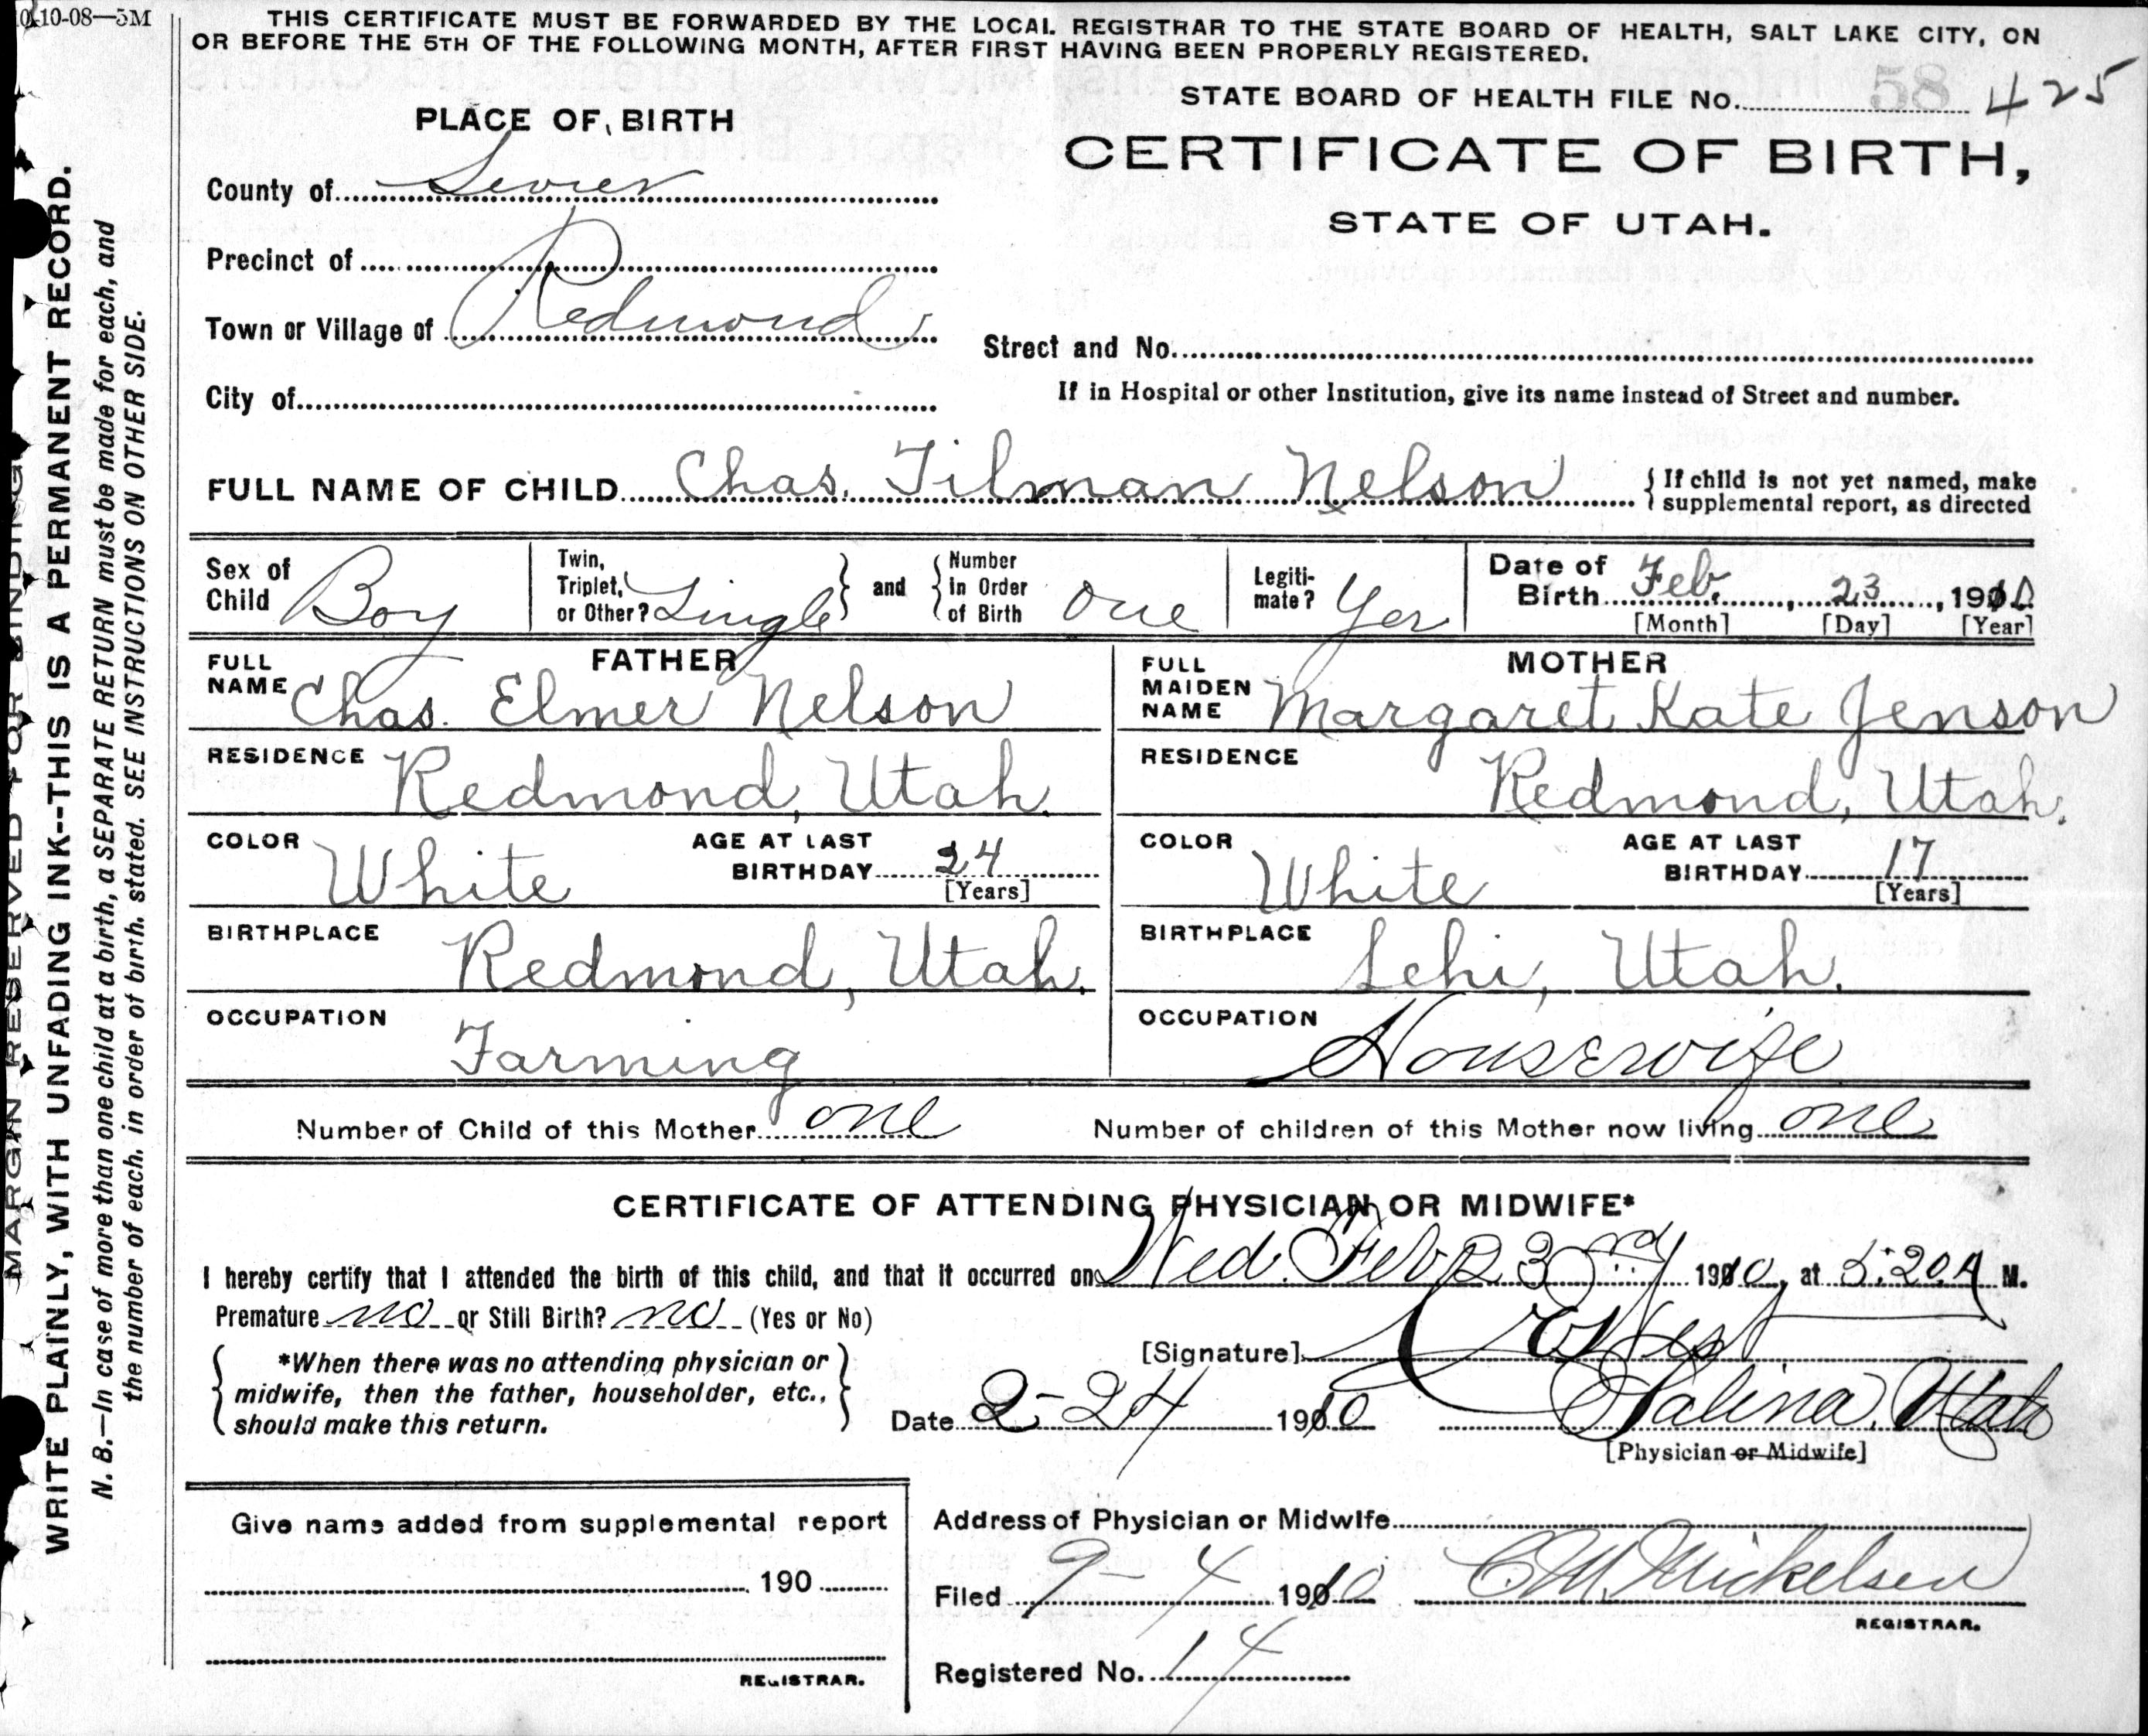 10-10-08—5M
THIS CERTIFICATE MUST BE FORWARDED BY THE LOCAL REGISTRAR TO THE STATE BOARD OF HEALTH, SALT LAKE CITY, ON
OR BEFORE THE 5TH OF THE FOLLOWING MONTH, AFTER FIRST HAVING BEEN PROPERLY REGISTERED.
STATE BOARD OF HEALTH FILE No. 58 425
PLACE OF BIRTH
CERTIFICATE OF BIRTH,
STATE OF UTAH.
County of Sevier
Precinct of
Town or Village of Redmond
Street and No.
City of
If in Hospital or other Institution, give its name instead of Street and number.
FULL NAME OF CHILD Chas. Tilman Nelson { If child is not yet named, make
supplemental report, as directed
Sex of Child Boy
Twin, Triplet, or Other? Single } and { Number in Order of Birth One
Legiti-mate? Yes
Date of Birth Feb. 23, 1910
[Month] [Day] [Year]
FATHER
FULL NAME Chas. Elmer Nelson
RESIDENCE Redmond, Utah.
COLOR White AGE AT LAST BIRTHDAY 24
[Years]
BIRTHPLACE Redmond, Utah.
OCCUPATION Farming
MOTHER
FULL MAIDEN NAME Margaret Kate Jenson
RESIDENCE Redmond, Utah.
COLOR White AGE AT LAST BIRTHDAY 17
[Years]
BIRTHPLACE Lehi, Utah.
OCCUPATION Housewife
Number of Child of this Mother one Number of children of this Mother now living one
CERTIFICATE OF ATTENDING PHYSICIAN OR MIDWIFE*
I hereby certify that I attended the birth of this child, and that it occurred on Wed. Feb 23rd 1910, at 5:20 A M.
Premature no or Still Birth? no (Yes or No)
*When there was no attending physician or
midwife, then the father, householder, etc.,
should make this return.
[Signature] West
Date 2-24 1910 Salina, Utah
[Physician or Midwife]
Give name added from supplemental report
190
REGISTRAR.
Address of Physician or Midwife
Filed 9-4 1910 C.M. Mickelsen
REGISTRAR.
Registered No. 14
MARGIN RESERVED FOR BINDING
WRITE PLAINLY, WITH UNFADING INK--THIS IS A PERMANENT RECORD.
N. B.—In case of more than one child at a birth, a SEPARATE RETURN must be made for each, and
the number of each, in order of birth, stated. SEE INSTRUCTIONS ON OTHER SIDE.